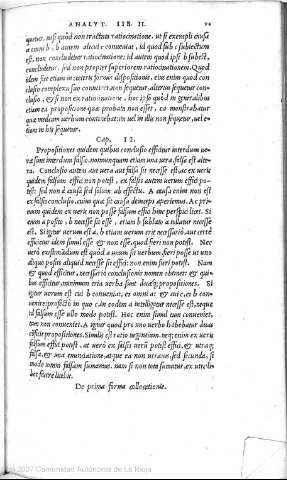 ANALYT. LIB. II.
quitur, nisi quòd non tractus ratiocinatione. ut si exempli causa
a omni b. b autem alicui c conveniat, id quod sub c subiectum
est, non concludetur ratiocinatione: id autem quod ipsi b subest,
concludetur, sed non propter superiorem ratiocinationem. Quod
idem fiet etiam in cæteris formis dispositionis, eius enim quod con
clusio complexa suo continet non sequetur, alterius con
clusio, & si non ex ratiocinatione. hoc ipso quòd in generalibus
etiam ea propositione quæ probata non esset, ea monstrabatur
quæ medium verbum vel in illis non sequetur, vel e-
tiam in his sequetur.
Cap. II.
Propositiones quidem quibus conclusio efficitur interdum ue-
ræ sunt interdum falsæ. nonnunquam etiam una uera, falsa est alte-
ra. Conclusio autem aut uera aut falsa sit necesse est: ac ex ueris
quidem falsum effici non potest, ex falsis autem uerum effici po-
test: sed non à causa sed solum ab effectu. A causa enim non est
ex falsis conclusio, cuius quæ sit causa deinceps aperiemus. Ac pri-
mum quidem ex ueris non posse falsum effici hinc perspici licet. Si
enim a posito, b necesse sit esse, etiam b sublato a tollatur necesse
est. Si igitur uerum est a. b etiam uerum erit necessariò, aut certè
efficietur idem simul esse & non esse, quod fieri non potest. Nec
uerò existimandum est quòd a unum sit uerbum, fieri posse ut uno
aliquo posito aliquid necesse sit effici: non enim fieri potest. Nam
& quod efficitur, necessariò conclusionis nomen obtinet: & qui-
bus efficitur, minimum tria uerba sunt duæque propositiones. Si
igitur uerum est cui b conueniat, ei omni a: & cui c, ei b con-
uenire: profectò in quo c ibi eodem a intelligitur necesse est, neque
id falsum esse ullo modo potest. Hoc enim simul cum conueniet,
tum non conueniet. A igitur pro uno uerbo habebatur duas
complexa propositiones. Similis est ratio negantium. neque enim ex ueris
falsum effici potest, at uerò ex falsis uerũ potest effici, & utraque
falsa, & una enunciatione, atque ea non utrauis, sed secunda, si
modo totam falsam sumamus. nam si non tota sumatur, ex utrali-
bet facere licebit.
De prima forma collocationis.
2007 Comunidad Autónoma de La Rioja